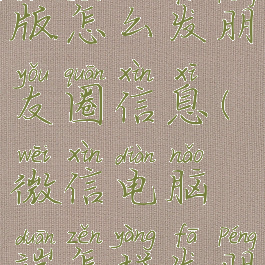 版怎么发朋
yǒu quān xìn xī
友圈信息(
wēi xìn diàn nǎo
微信电脑
duān zěn yàng fā péng